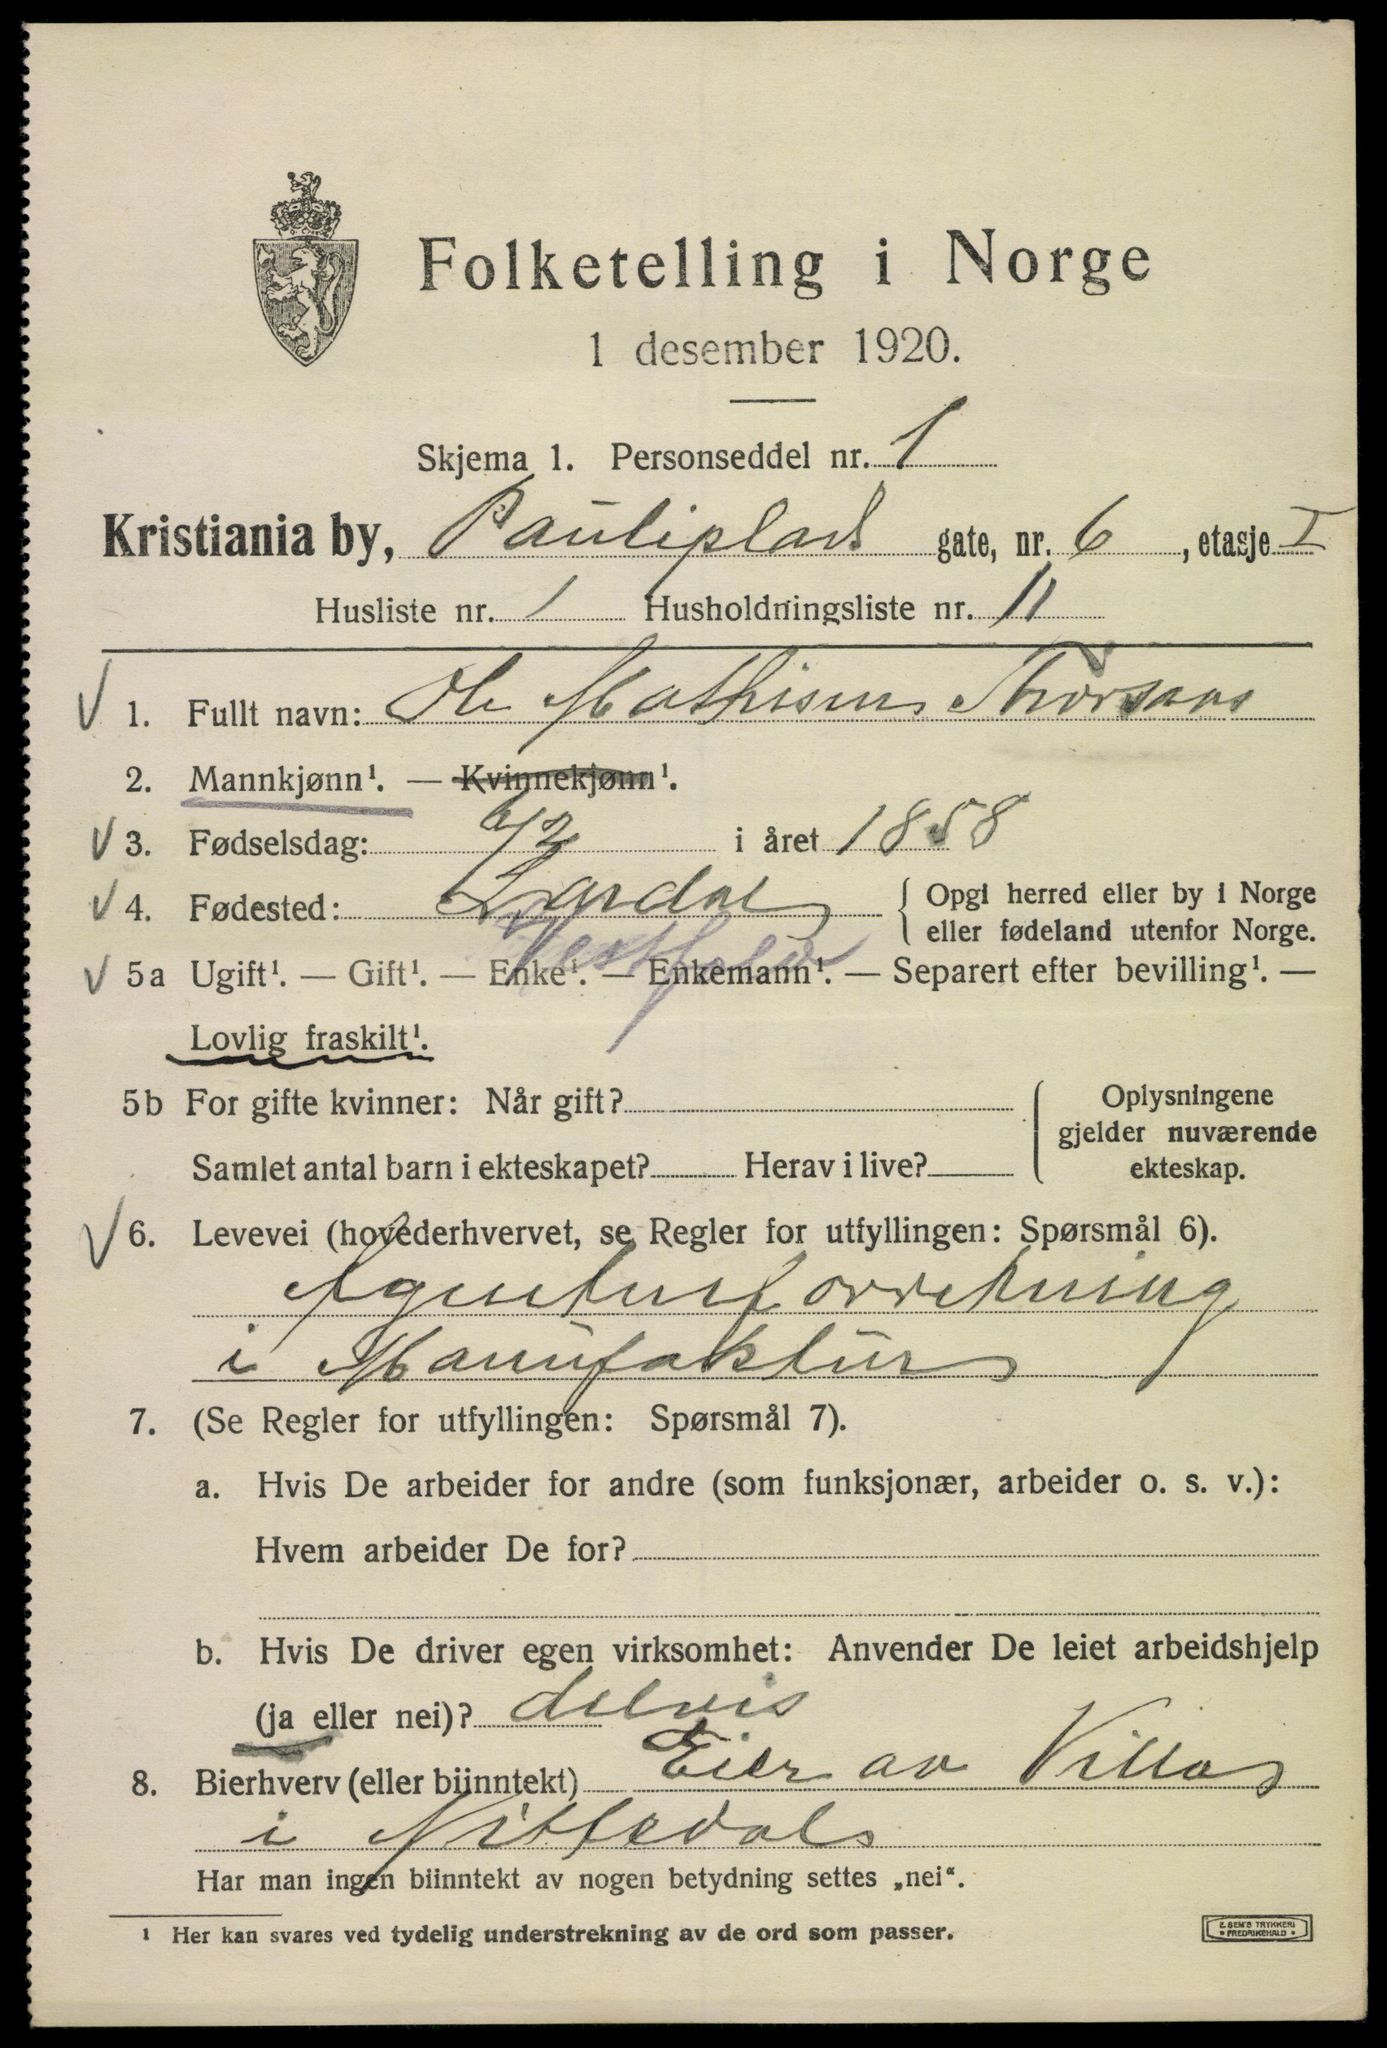 Folketelling i Norge
1 desember 1920.
Skjema 1. Personseddel nr. 1
Kristiania by, Pauliplads gate, nr. 6, etasje I
Husliste nr. 1 Husholdningsliste nr. 11
1. Fullt navn: Ole Mathisen Thorsaas
2. Mannkjønn¹. — Kvinnekjønn¹.
3. Fødselsdag: 6/2 i året 1858
4. Fødested: Lardal { Opgi herred eller by i Norge
eller fødeland utenfor Norge.
Vestfold
5a Ugift¹. — Gift¹. — Enke¹. — Enkemann¹. — Separert efter bevilling¹. —
Lovlig fraskilt¹.
5b For gifte kvinner: Når gift?
Samlet antal barn i ekteskapet? Herav i live?
Oplysningene
gjelder nuværende
ekteskap.
6. Levevei (hovederhvervet, se Regler for utfyllingen: Spørsmål 6).
Agenturforretning
i Manufaktur
7. (Se Regler for utfyllingen: Spørsmål 7).
a. Hvis De arbeider for andre (som funksjonær, arbeider o. s. v.):
Hvem arbeider De for?
b. Hvis De driver egen virksomhet: Anvender De leiet arbeidshjelp
(ja eller nei)? delvis
8. Bierhverv (eller biinntekt) Eier av Villa
i Nittedal
Har man ingen biinntekt av nogen betydning settes „nei“.
¹ Her kan svares ved tydelig understrekning av de ord som passer.
E. SEM'S TRYKKERI
• FREDRIKSHALD •